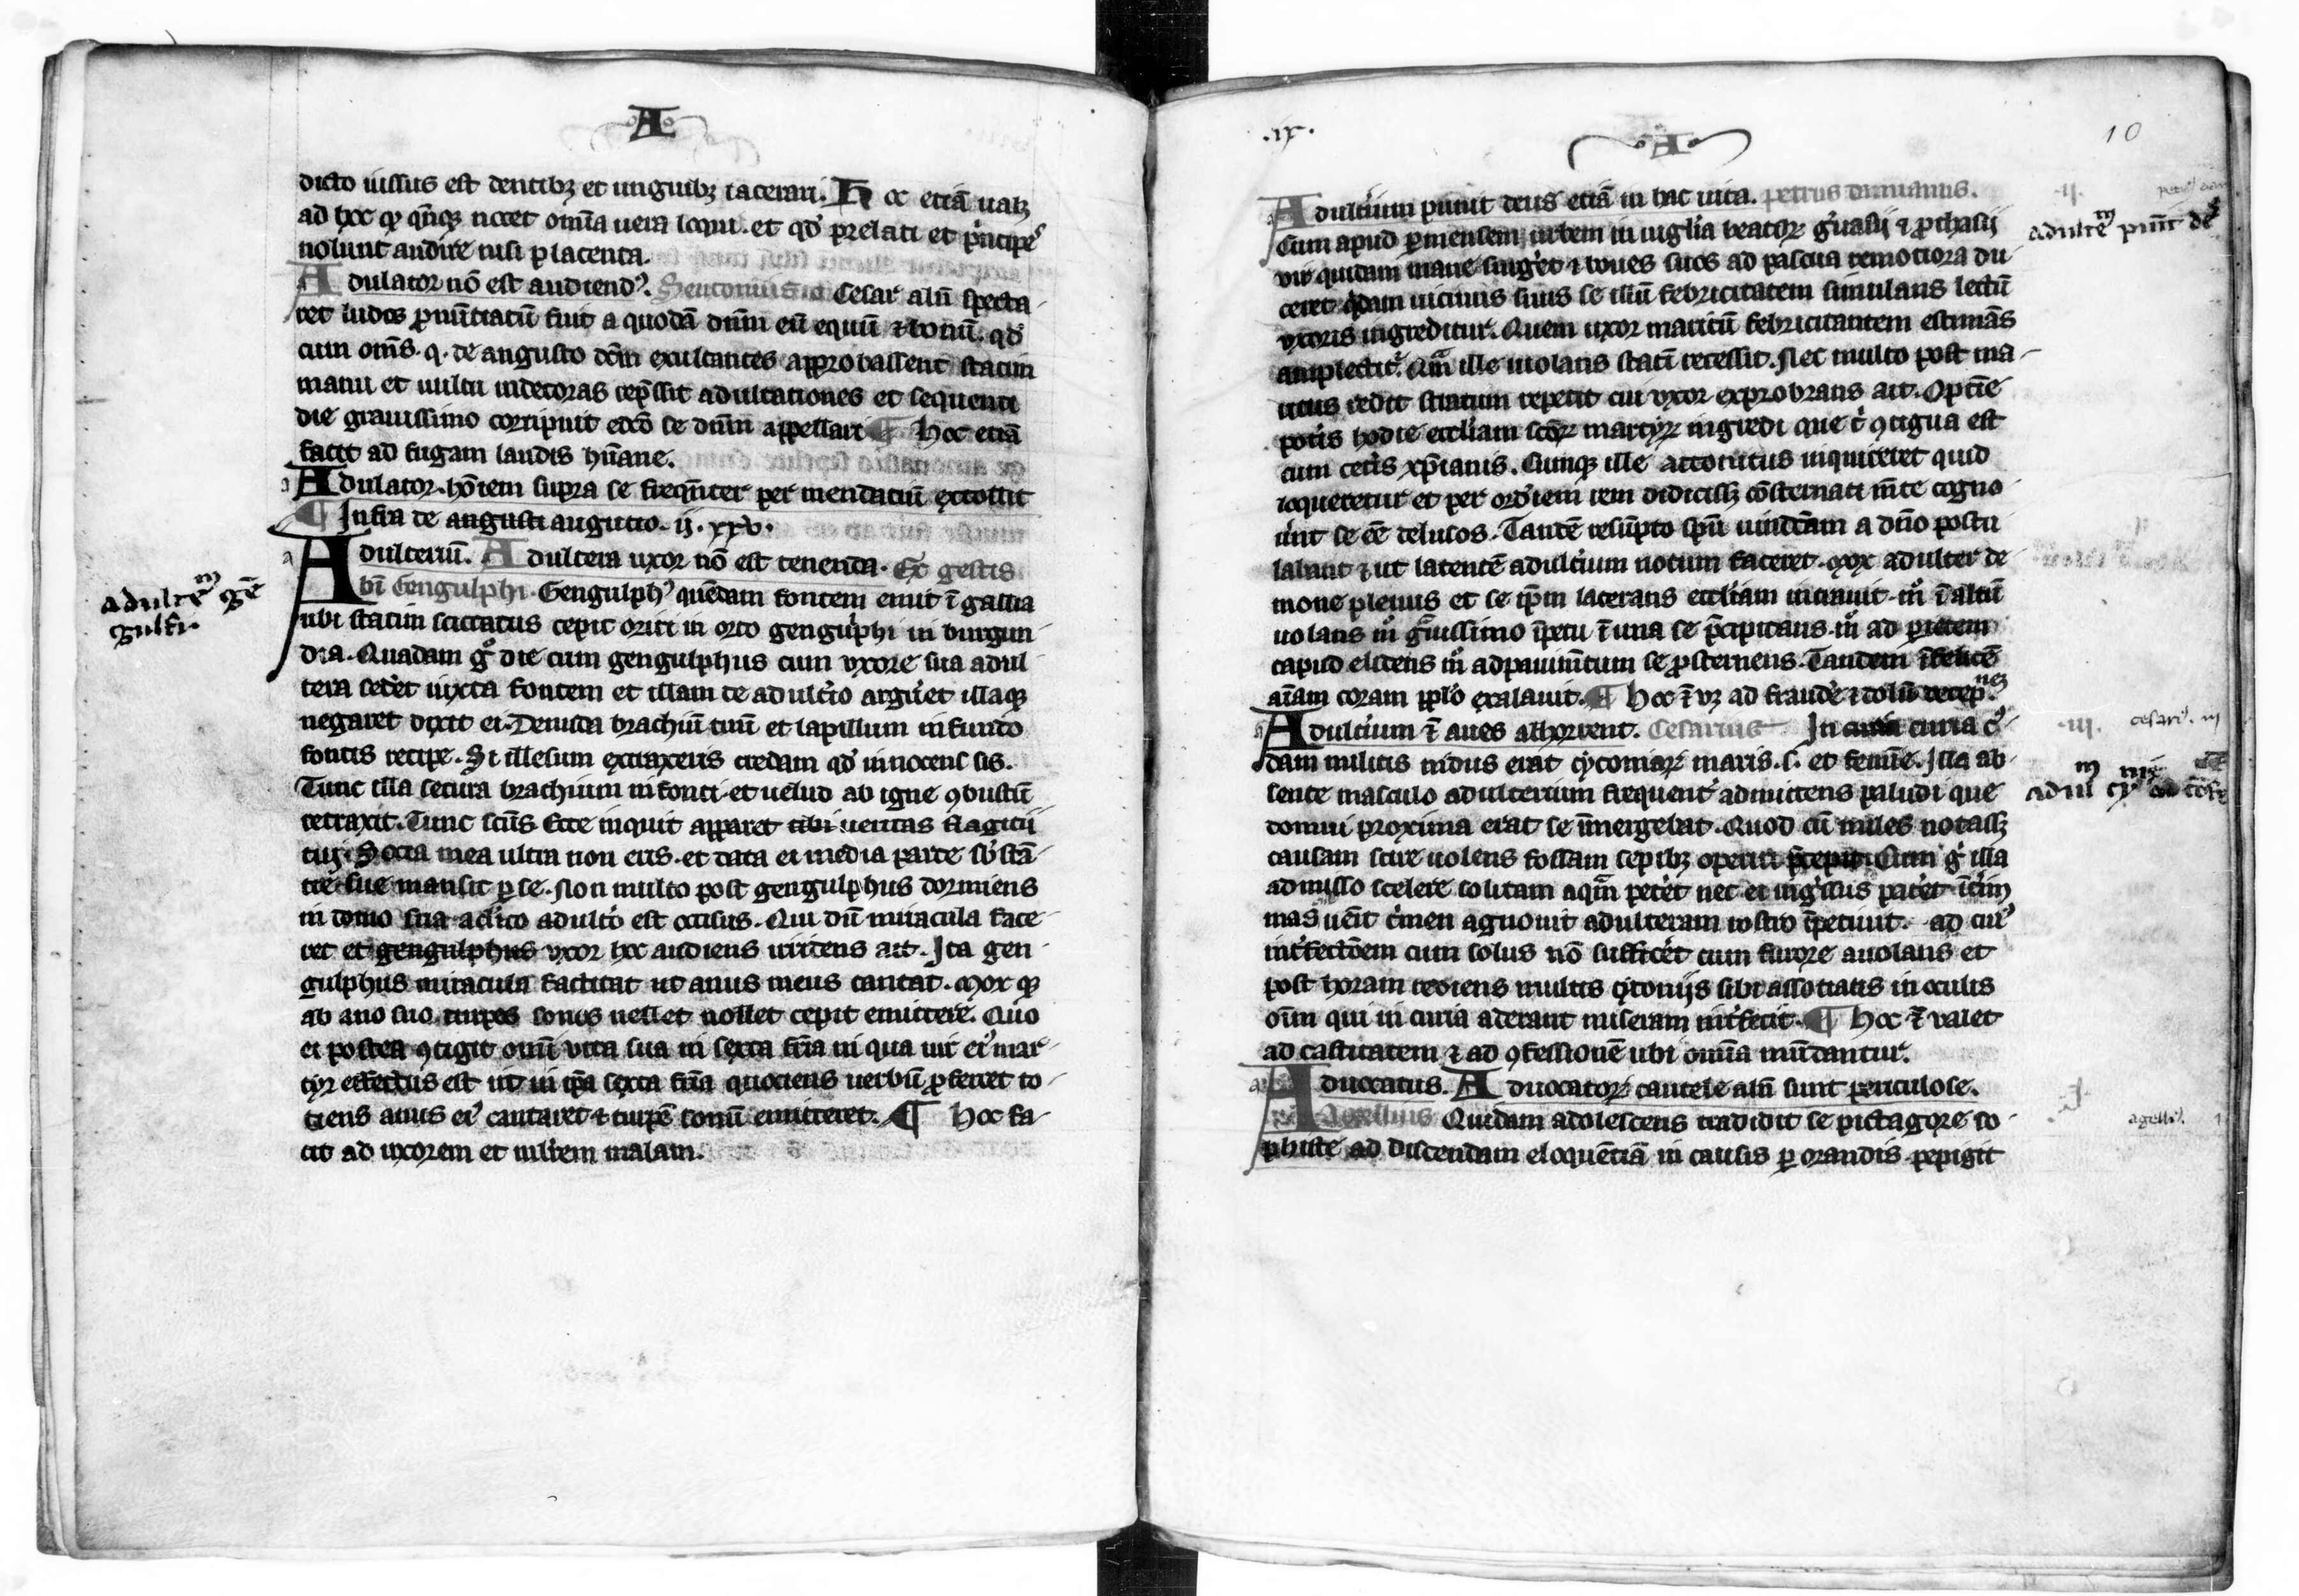 A
dicto iussus est dentibꝫ et unguibꝫ lacerari. Hoc etiã ualꝫ
ad hoc qꝫ qñqꝫ nocet omĩa uera loqui. et qđ prelati et pͥncipeˢ
nolunt audire nisi placentia.
Adulator nõ est audiendꝰ. Seutonius Cesar alñ specta-
ret ludos ꝓnũtiatũ fuit a quodã dñm eũ equũ ⁊ bonũ. qđ
cum om̃s. q. de augusto dõm exultantes approbassent statim
manu et uultu indecoras rep̃ssit adultationes et sequenti
die grauissimo corripuit edc̃o se dñm appellari ¶ Hoc etiã
facit ad fugam laudis hũane.
Adulator hõiem supra se freqñter per mendatiũ extollit
¶ Infra de angusti augurio. ij. xxv.
Adulteriũ. Adultera uxor nõ est tenenda. Ex gestis
bĩ Gengulphi. Gengulphꝰ quẽdam fontem emit ĩ gallia
ubi statim siccatus cepit oriri in orto gengulphi in burgun-
dia. Quadam gͦ die cum gengulphus cum vxore sua adul-
tera sederet iuxta fontem et illam de adult̾io argueret illaqꝫ
negaret dixit ei. Denuda brachiũ tuũ et lapillum in fundo
fontis recipe. Si illesum extraxeris credam qđ innocens sis.
Tunc illa secura brachium in fonti. et uelud ab igne ꝯbustũ
retraxit. Tunc scũs Ecce inquit apparet tibi ueritas flagitij
tui. Socia mea ultra non eris. et data ei media parte sb̾stã-
tie sue mansit ꝑ se. Non multo post gengulphus dormiens
in domo sua a cl̾ico adult̾o est occisus. Qui dũ miracula face-
ret et gengulphus vxor hoc audiens irridens ait. Ita gen-
gulphus miracula factitat ut anus meus cantat. Mox qꝫ
ab ano suo turpes sonos uellet nollet cepit emittere. Quo
ei postea ꝯtigit omĩ vita sua in sexta fĩa in qua uir eiꝰ mar-
tyr effectus est ut in ip̃a sexta fĩa quociens uerbũ ꝓferret to-
tiens anus eiꝰ cantaret ⁊ turpẽ sonũ emitteret. ¶ Hoc fa-
cit ad uxorem et ml̾rem malam.
adulteᵐ gẽ
gulfi.
.ix.
A
10
Adult̾ium punit deus etiã in hac uita. petrus damianus.
Cum apud ꝑmensem urbem in uigl̾ia beatoꝝ g̾uasij ⁊ ꝓthasij
vir quidam mane surg̾et ⁊ boues suos ad pascua remotiora du-
ceret qͥdam uicinus suus se illũ febricitatem simulans lectũ
vxoris ingreditur. Quem uxor maritũ febricitantem estimãs
amplectit̾. Qm̃ ille uiolans statĩ recessit. Nec multo post ma-
ritus redit stratum repetit cui vxor exprobrans ait. Optĩe
potis hodie eccl̾iam sc̃oꝝ martyꝝ ingredi que t̾ ꝯtigua est
cum cet̾is xp̃ianis. Cunqꝫ ille attonitus inquireret quid
loqueretur et per ord̾iem rem didicissꝫ cõsternati m̃te cogno-
u̾nt se eẽ delusos. Tandẽ resũpto sp̃u uindc̃am a dño postu
labant ⁊ ut latentẽ adult̾ium notum faceret. Mox adulter de-
mone plenus et se ip̃m lacerans eccl̾iam intrauit. mͦ ĩ altũ
uolans mͦ gͣuissimo ĩpetu ĩ una se p̃cipitans. mͦ ad parietem
capud elidens mͦ ad pauim̃tum se ꝓsternens. Tandem ĩfelicẽ
aĩam coram pplo exalauit. ¶ Hoc ẽ vꝫ ad fraudẽ ⁊ dolũ decepⁿᵉˢ
Adult̾ium ẽ aues abhorrent. Cesarius In curia cͥ-
dam militis nidus erat cyconiaꝝ maris. s. et femĩe. Illa ab-
sente masculo adulterium frequent̾ admittens paludi que
domui proxima erat se ĩmergebat. Quod cũ miles notassꝫ
causam scire uolens fossam sepibꝫ operiri p̃cepit. Cum gͦ illa
admisso scelere solitam aqͣm peter̾et nec ei ing̾ssus pater̾et ĩt̾im
mas ueĩt c̾men agnouit adulteram rostro ĩpetiuit. ad cuiꝰ
int̾fectõem cum solus nõ suffic̾et cum furore auolans et
post horam rediens multis cyconijs sibi associatis in oculis
oĩm qui in curia aderant miseram int̾fecit. ¶ Hoc ẽ valet
ad castitatem ⁊ ad ꝯfessionẽ ubi omĩa mũdantur.
Aduocatus. Aduocatoꝝ cautele alñ sunt periculose.
Agellius Quidam adolescens tradidit se pictagore so-
phiste ad discendam eloquẽtiã in causis ꝑorandis pepigit
.ij.
adulteᵐ puñit dẽ
.iij.
cesariꝰ. m
agelliꝰ. 1